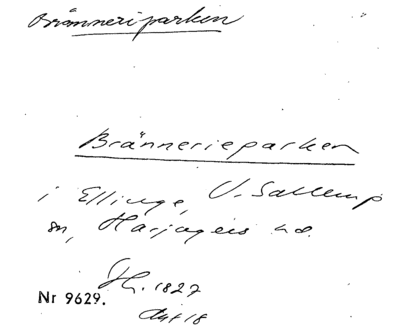 Bränneriparken
Brännerieparken
i Ellinge, V. Sallerup
sn, Harjagers hd.
Nr 9629.
1827
Akt 18